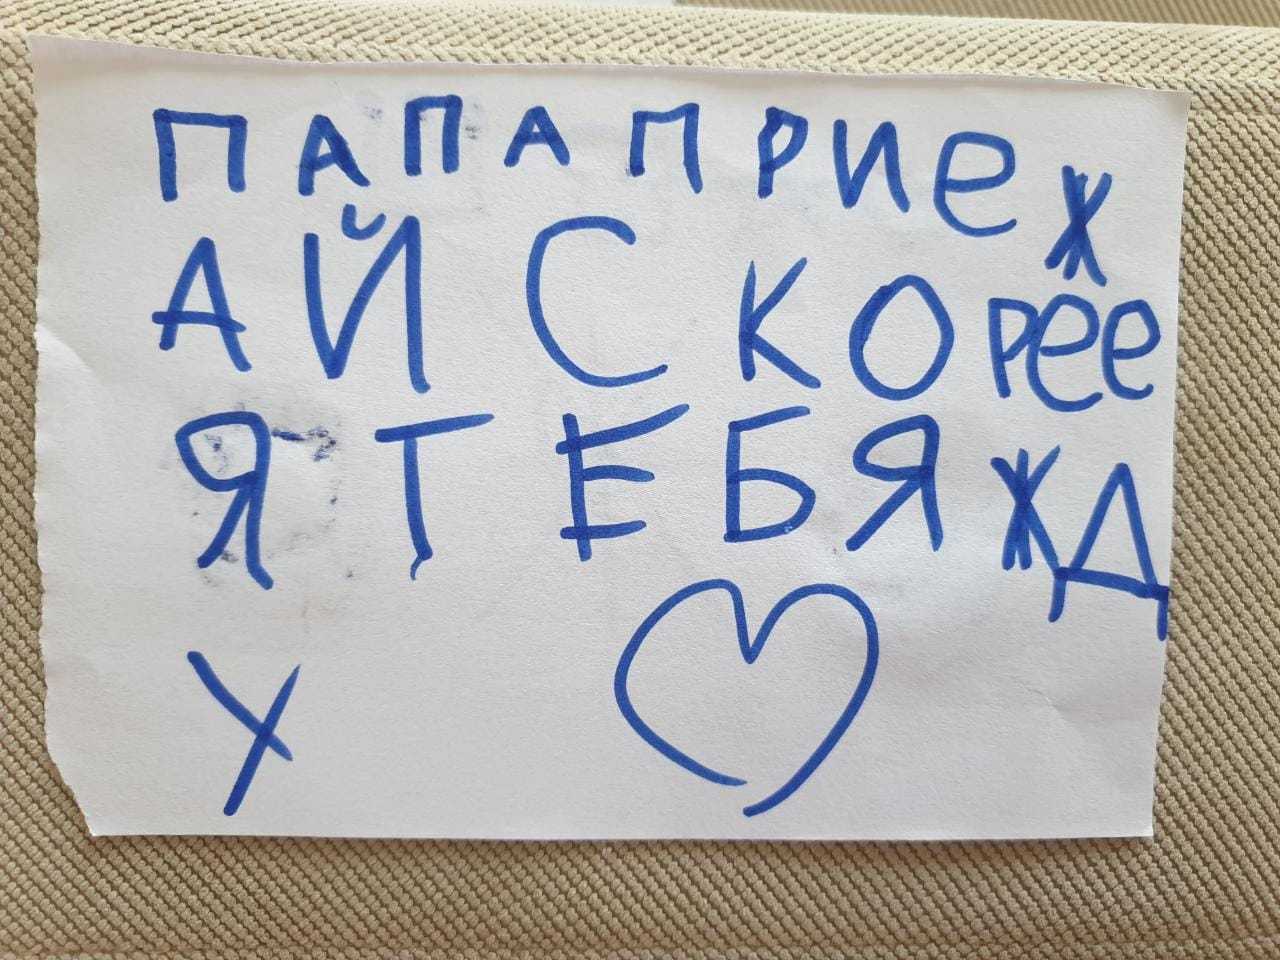 ПАПА ПРИЕЖ
АЙ СКОРЕЕ
Я ТЕБЯ ЖД
У